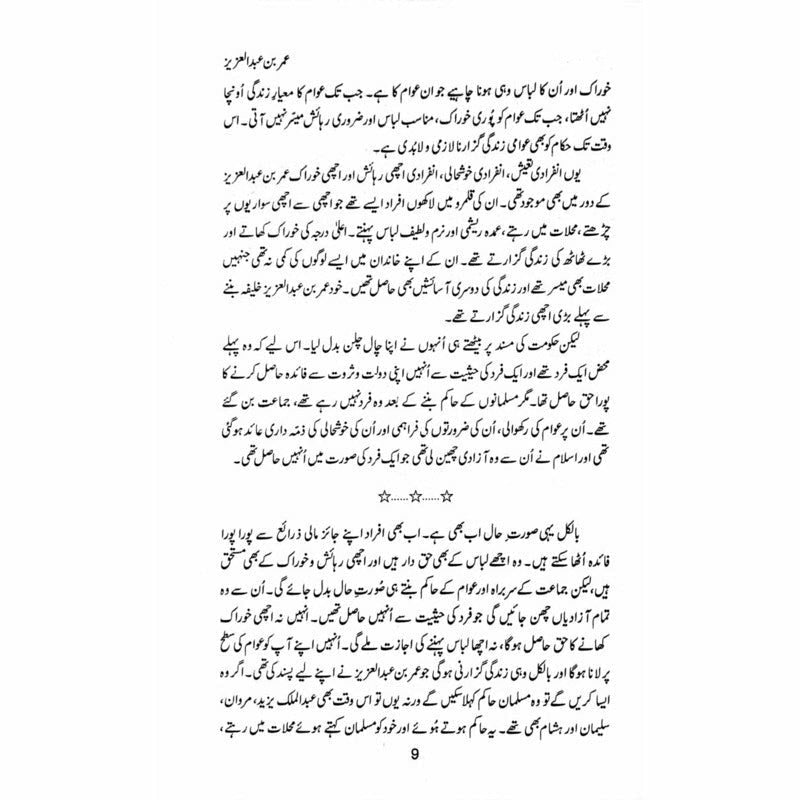 عمر بن عبدالعزیز
خوراک اور اُن کا لباس وہی ہونا چاہیے جو ان عوام کا ہے۔ جب تک عوام کا معیارِ زندگی اُونچا
نہیں اُٹھتا، جب تک عوام کو پُوری خوراک، مناسب لباس اور ضروری رہائش میسّر نہیں آتی۔ اس
وقت تک حکام کو بھی عوامی زندگی گزارنا لازمی و لابُدی ہے۔
یوں انفرادی تعیش، انفرادی خوشحالی، انفرادی اچھی رہائش اور اچھی خوراک عمر بن عبدالعزیز
کے دور میں بھی موجود تھی۔ ان کی قلمرو میں لاکھوں افراد ایسے تھے جو اچھی سے اچھی سواریوں پر
چڑھتے، محلات میں رہتے، عمدہ ریشمی اور نرم و لطیف لباس پہنتے۔ اعلیٰ درجہ کی خوراک کھاتے اور
بڑے ٹھاٹھ کی زندگی گزارتے تھے۔ ان کے اپنے خاندان میں ایسے لوگوں کی کمی نہ تھی جنہیں
محلات بھی میسر تھے اور زندگی کی دوسری آسائشیں بھی حاصل تھیں۔ خود عمر بن عبدالعزیز خلیفہ بننے
سے پہلے بڑی اچھی زندگی گزارتے تھے۔
لیکن حکومت کی مسند پر بیٹھتے ہی اُنہوں نے اپنا چال چلن بدل لیا۔ اس لیے کہ وہ پہلے
محض ایک فرد تھے اور ایک فرد کی حیثیت سے اُنہیں اپنی دولت و ثروت سے فائدہ حاصل کرنے کا
پورا حق حاصل تھا۔ مگر مسلمانوں کے حاکم بننے کے بعد وہ فرد نہیں رہے تھے، جماعت بن گئے
تھے۔ اُن پر عوام کی رکھوالی، اُن کی ضرورتوں کی فراہمی اور اُن کی خوشحالی کی ذمّہ داری عائد ہوگئی
تھی اور اسلام نے اُن سے وہ آزادی چھین لی تھی جو ایک فرد کی صورت میں اُنہیں حاصل تھی۔
☆......☆......☆
بالکل یہی صورتِ حال اب بھی ہے۔ اب بھی افراد اپنے جائز مالی ذرائع سے پورا پورا
فائدہ اُٹھا سکتے ہیں۔ وہ اچھے لباس کے بھی حق دار ہیں اور اچھی رہائش و خوراک کے بھی مستحق
ہیں، لیکن جماعت کے سربراہ اور عوام کے حاکم بنتے ہی صُورتِ حال بدل جائے گی۔ اُن سے وہ
تمام آزادیاں چھن جائیں گی جو فرد کی حیثیت سے اُنہیں حاصل تھیں۔ انہیں نہ اچھی خوراک
کھانے کا حق حاصل ہوگا، نہ اچھا لباس پہننے کی اجازت ملے گی۔ اُنہیں اپنے آپ کو عوام کی سطح
پر لانا ہوگا اور بالکل وہی زندگی گزارنی ہوگی جو عمر بن عبدالعزیز نے اپنے لیے پسند کی تھی۔ اگر وہ
ایسا کریں گے تو وہ مسلمان حاکم کہلا سکیں گے ورنہ یوں تو اس وقت بھی عبدالملک یزید، مروان،
سلیمان اور ہشام بھی تھے۔ یہ حاکم ہوتے ہُوئے اور خود کو مسلمان کہتے ہوئے محلات میں رہتے،
9